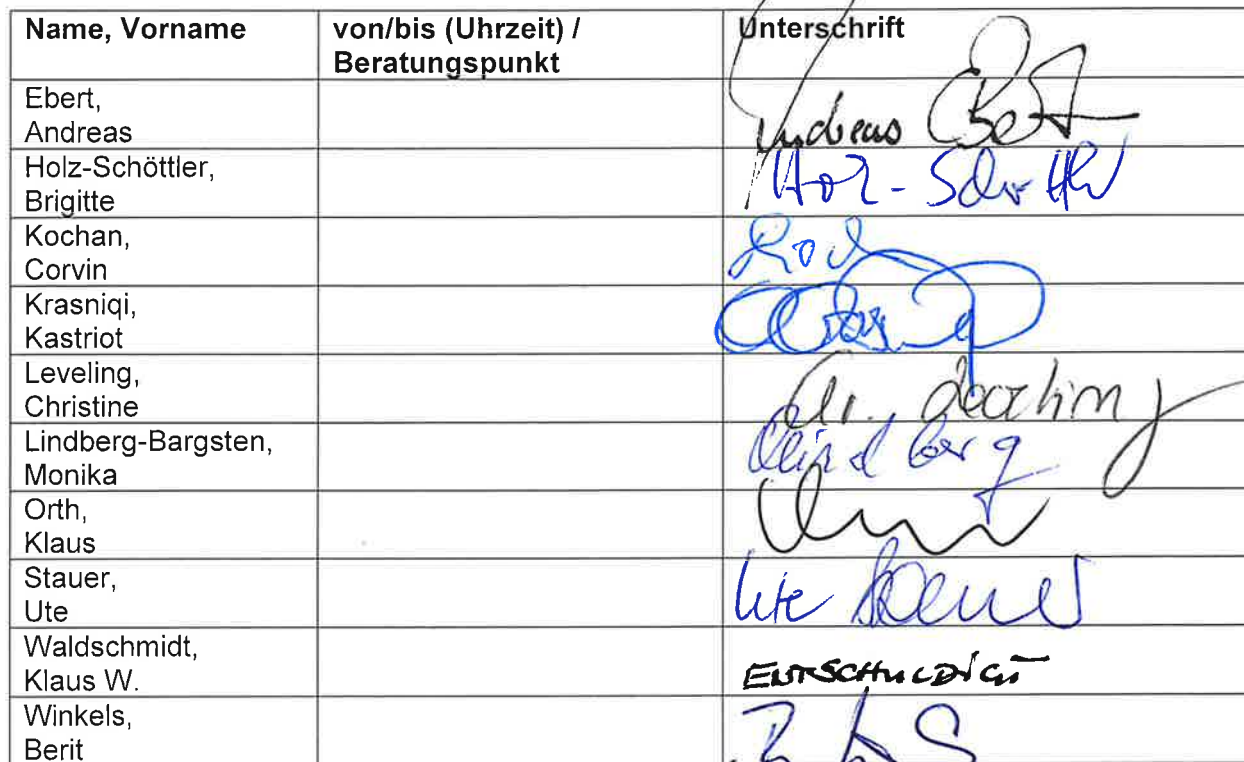 Name, Vorname
von/bis (Uhrzeit) /
Beratungspunkt
Unterschrift
Ebert,
Andreas
Andreas
Holz-Schöttler,
Brigitte
Holz-
Kochan,
Corvin
Krasniqi,
Kastriot
Leveling,
Christine
Lindberg-Bargsten,
Monika
Lindberg
Orth,
Klaus
Stauer,
Ute
Ute
Waldschmidt,
Klaus W.
ENTSCHULDIGT
Winkels,
Berit